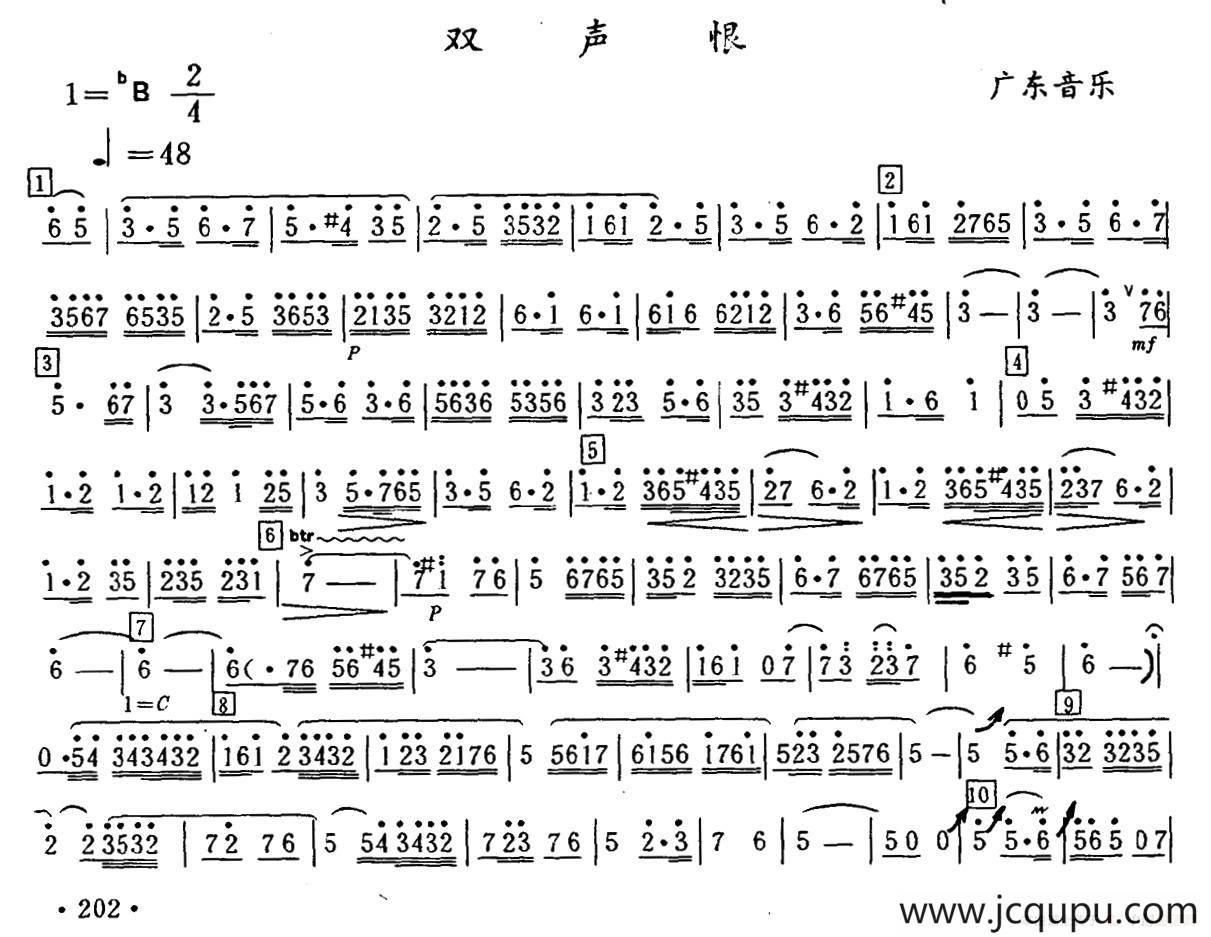 双 声 恨
1=ᵇB 2/4
广东音乐
♩=48
1 2
6 5 | 3·5 6·7 | 5·#4 35 | 2·5 3532 | 161 2·5 | 3·5 6·2 | 161 2765 | 3·5 6·7 |
3567 6535 | 2·5 3653 | 2135 3212 | 6·1 6·1 | 616 6212 | 3·6 56#45 | 3 — | 3 — | 3 ∨ 76 |
P mf
3 4
5· 67 | 3 3·567 | 5·6 3·6 | 5636 5356 | 323 5·6 | 35 3#432 | 1·6 1 | 05 3#432 |
5
1·2 1·2 | 12 1 25 | 3 5·765 | 3·5 6·2 | 1·2 365#435 | 27 6·2 | 1·2 365#435 | 237 6·2 |
6 btr
1·2 35 | 235 231 | 7 — — | 7#1 76 | 5 6765 | 352 3235 | 6·7 6765 | 352 35 | 6·7 567 |
P
7
6 — | 6 — | 6(·76 56#45 | 3 — — | 36 3#432 | 161 07 | 73 237 | 6 #5 | 6 —) |
1=C 8 9
0·54 343432 | 161 23432 | 123 2176 | 5 5617 | 6156 1761 | 523 2576 | 5 — | 5 5·6 | 32 3235 |
10
2 23532 | 72 76 | 5 543432 | 723 76 | 5 2·3 | 7 6 | 5 — | 50 0 | 5 5·6 | 565 07
·202·
www.jcqupu.com